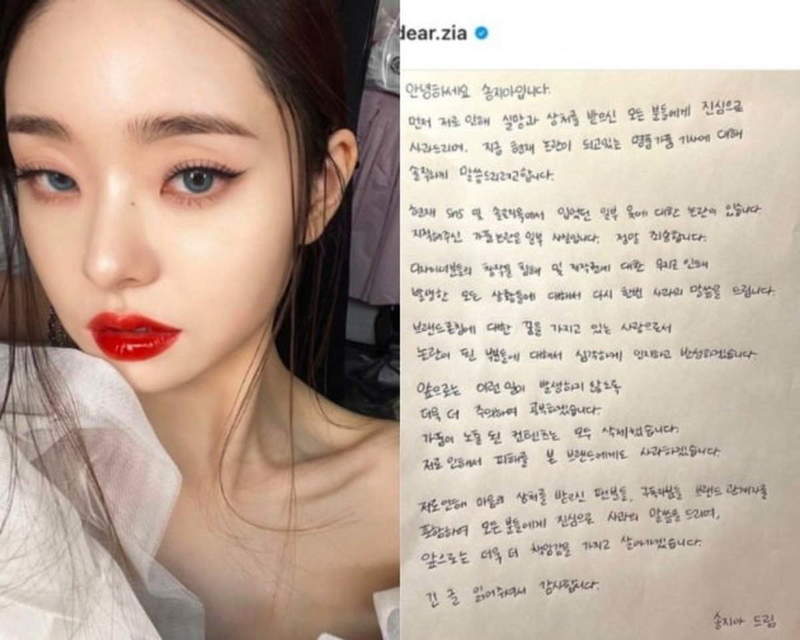 dear.zia
안녕하세요 송지아입니다.
먼저 저로 인해 실망과 상처를 받으신 모든 분들에게 진심으로
사과드리며, 지금 현재 논란이 되고있는 명품가품 기사에 대해
솔직하게 말씀드리려고합니다.
현재 SNS 및 솔로지옥에서 입었던 일부 옷에 대한 논란이 있습니다.
지적해주신 가품논란은 일부 사실입니다. 정말 죄송합니다.
디자이너분들의 창작물 침해 및 저작권에 대한 무지로 인해
발생한 모든 상황들에 대해서 다시 한번 사과의 말씀을 드립니다.
브랜드론칭에 대한 꿈을 가지고 있는 사람으로서
논란이 된 부분들에 대해서 심각하게 인지하고 반성하겠습니다.
앞으로는 이런 일이 발생하지 않도록
더욱 더 주의하며 공부하겠습니다.
가품이 노출 된 컨텐츠는 모두 삭제했습니다.
저로 인해서 피해를 본 브랜드에게도 사과하겠습니다.
저로인해 마음의 상처를 받으신 팬분들, 구독자분들, 브랜드 관계자를
포함하여 모든 분들에게 진심으로 사과의 말씀을 드리며,
앞으로는 더욱 더 책임감을 가지고 살아가겠습니다.
긴 글 읽어주셔서 감사합니다.
송지아 드림